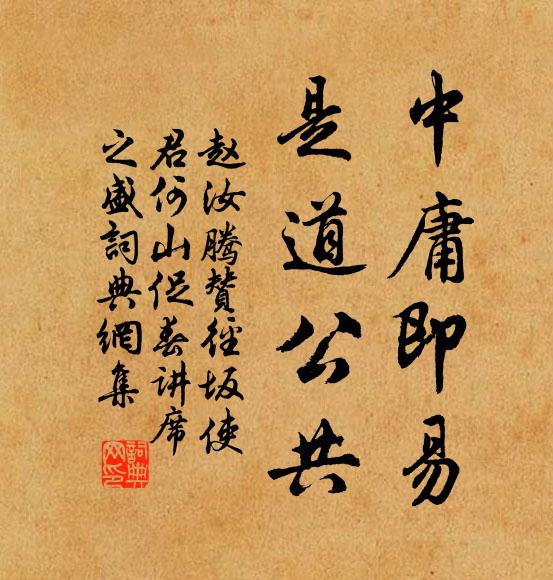 中庸即易
是道公共
赵汝腾赞径坂使
君何山促春讲席
之盛詞典網集
詞典網印